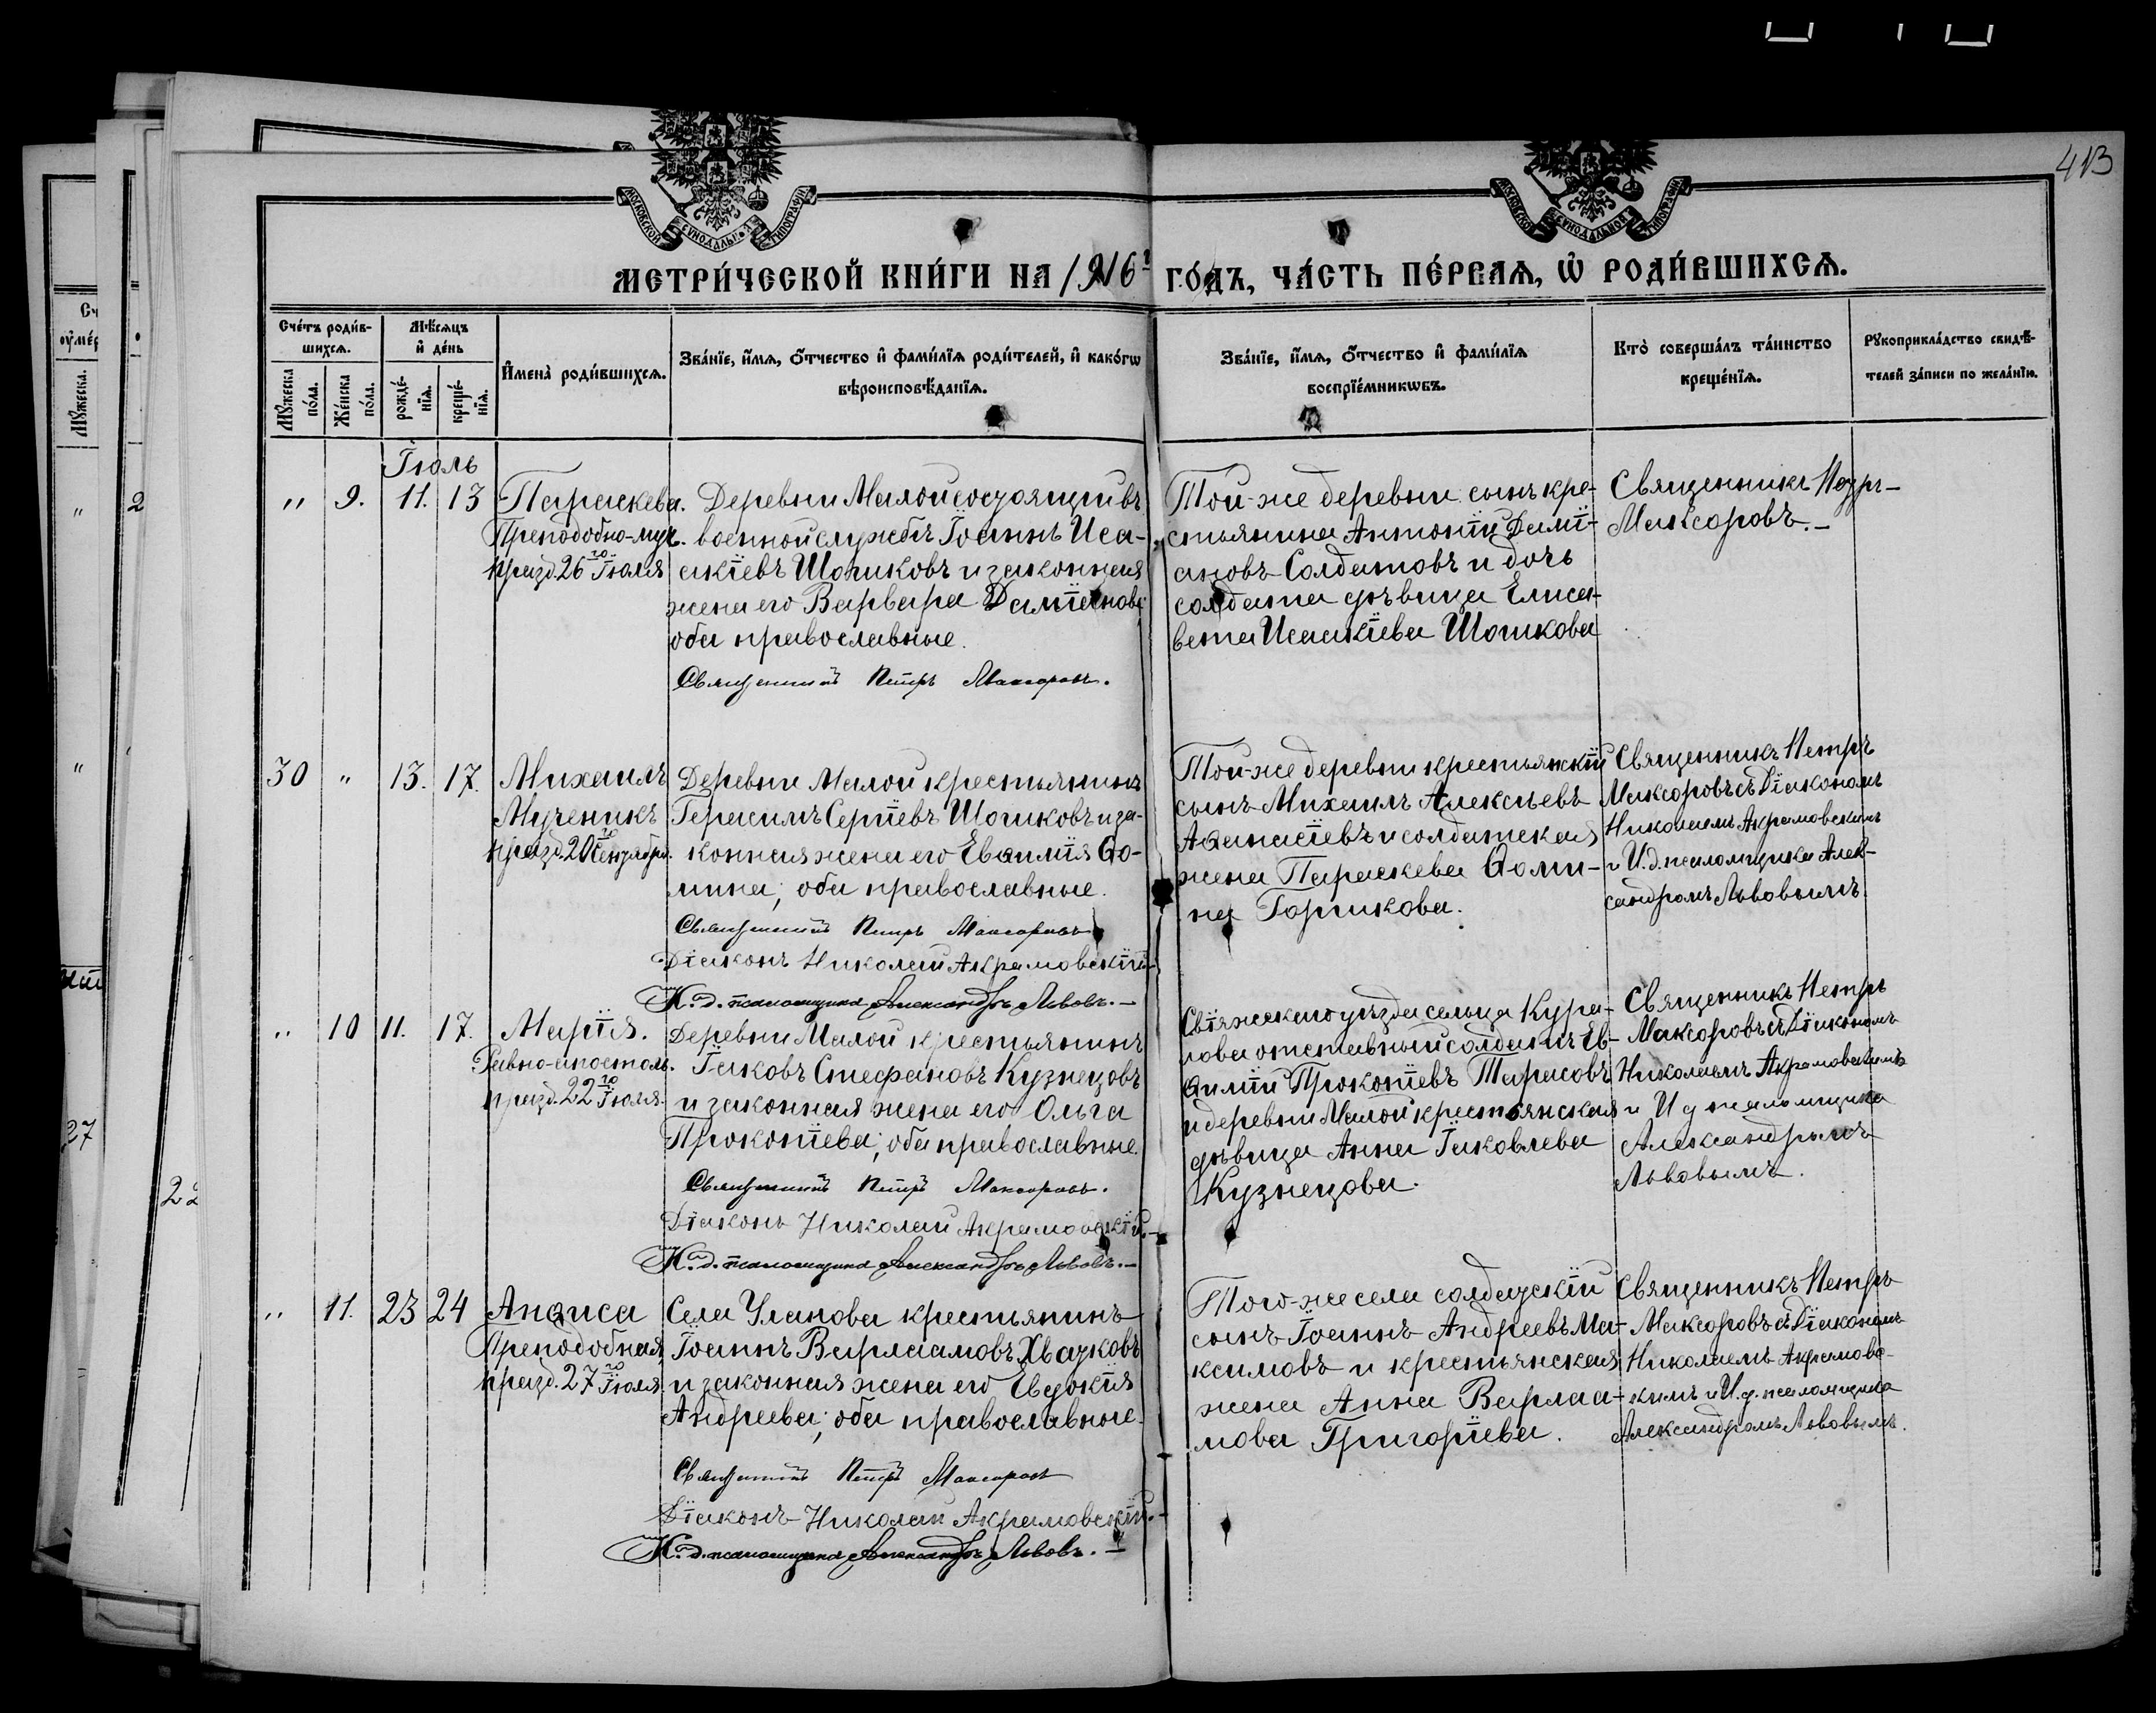 413
МОСКОВСКОЙ СѴНОДАЛЬНОЙ ТИПОГРАФІИ
МОСКОВСКОЙ СѴНОДАЛЬНОЙ ТИПОГРАФІИ
МЕТРИ́ЧЕСКОЙ КНИ́ГИ НА 1916г ГО́ДЪ, ЧА́СТЬ ПЕ́РВАѦ, Ѡ҆ РОДИ́ВШИХСѦ.
Сче́тъ роди́в-
шихсѧ.
Мꙋ́жеска
по́ла.
Же́нска
по́ла.
Мѣ́сѧцъ
и҆ де́нь
рожде́-
нїѧ.
креще́-
нїѧ.
И҆мена̀ роди́вшихсѧ.
Зва́нїе, и҆́мѧ, ѻ҆́тчество и҆ фами́лїѧ роди́телей, и҆ како́гѡ
вѣроисповѣ́данїѧ.
Зва́нїе, и҆́мѧ, ѻ҆́тчество и҆ фами́лїѧ
воспрїе́мникѡвъ.
Кто̀ соверша́лъ та́инство
креще́нїѧ.
Рꙋкоприкла́дство свидѣ́-
телей за́писи по жела́нїю.
Іюль
" 9. 11. 13
Параскева.
Преподобно-муч.
празд. 26го Іюля
Деревни Малой состоящій въ
военной службѣ Іоаннъ Иса-
акіевъ Шошковъ и законная
жена его Варвара Даміанова;
оба православные.
Священникъ Петръ Максоровъ.
Той-же деревни сынъ кре-
стьянина Антоній Дамі-
ановъ Солдатовъ и дочь
солдата дѣвица Елиса-
вета Исаакіева Шошкова
Священникъ Петръ
Максоровъ.
30 " 13. 17.
Михаилъ
Мученикъ
празд. 20го Сентября.
Деревни Малой крестьянинъ
Герасимъ Сергіевъ Шошковъ и за-
конная жена его Евѳимія Ѳо-
мина; оба православные.
Священникъ Петръ Максоровъ
Діаконъ Николай Акрамовскій
И. д. псаломщика Александръ Львовъ.
Той-же деревни крестьянскій
сынъ Михаилъ Алексѣевъ
Аѳанасіевъ и солдатская
жена Параскева Ѳоми-
на Горшкова.
Священникъ Петръ
Максоровъ съ Діакономъ
Николаемъ Акрамовскимъ
и И. д. псаломщика Алек-
сандромъ Львовымъ.
" 10 11. 17.
Марія.
Равно-апостоль.
празд. 22го Іюля.
Деревни Малой крестьянинъ
Іаковъ Стефановъ Кузнецовъ
и законная жена его Ольга
Прокопіева; оба православные.
Священникъ Петръ Максоровъ.
Діаконъ Николай Акрамовскій.
И. д. псаломщика Александръ Львовъ.
Свіяжскаго уѣзда сельца Кура-
лова отставный солдатъ Ев-
ѳимій Прокопіевъ Тарасовъ
и деревни Малой крестьянская
дѣвица Анна Іаковлева
Кузнецова.
Священникъ Петръ
Максоровъ съ Діакономъ
Николаемъ Акрамовскимъ
и И д псаломщика
Александромъ
Львовымъ.
" 11. 23 24
Анѳиса
Преподобная,
празд. 27го Іюля.
Села Уланова крестьянинъ
Іоаннъ Варлаамовъ Хватковъ
и законная жена его Евдокія
Андреева; оба православные.
Священникъ Петръ Максоровъ
Діаконъ Николай Акрамовскій.
И. д. псаломщика Александръ Львовъ.
Того-же села солдатскій
сынъ Іоаннъ Андреевъ Ма-
ксимовъ и крестьянская
жена Анна Варлаа-
мова Григоріева.
Священникъ Петръ
Максоровъ съ Діакономъ
Николаемъ Акрамовс-
кимъ и И. д. псаломщика
Александромъ Львовымъ.